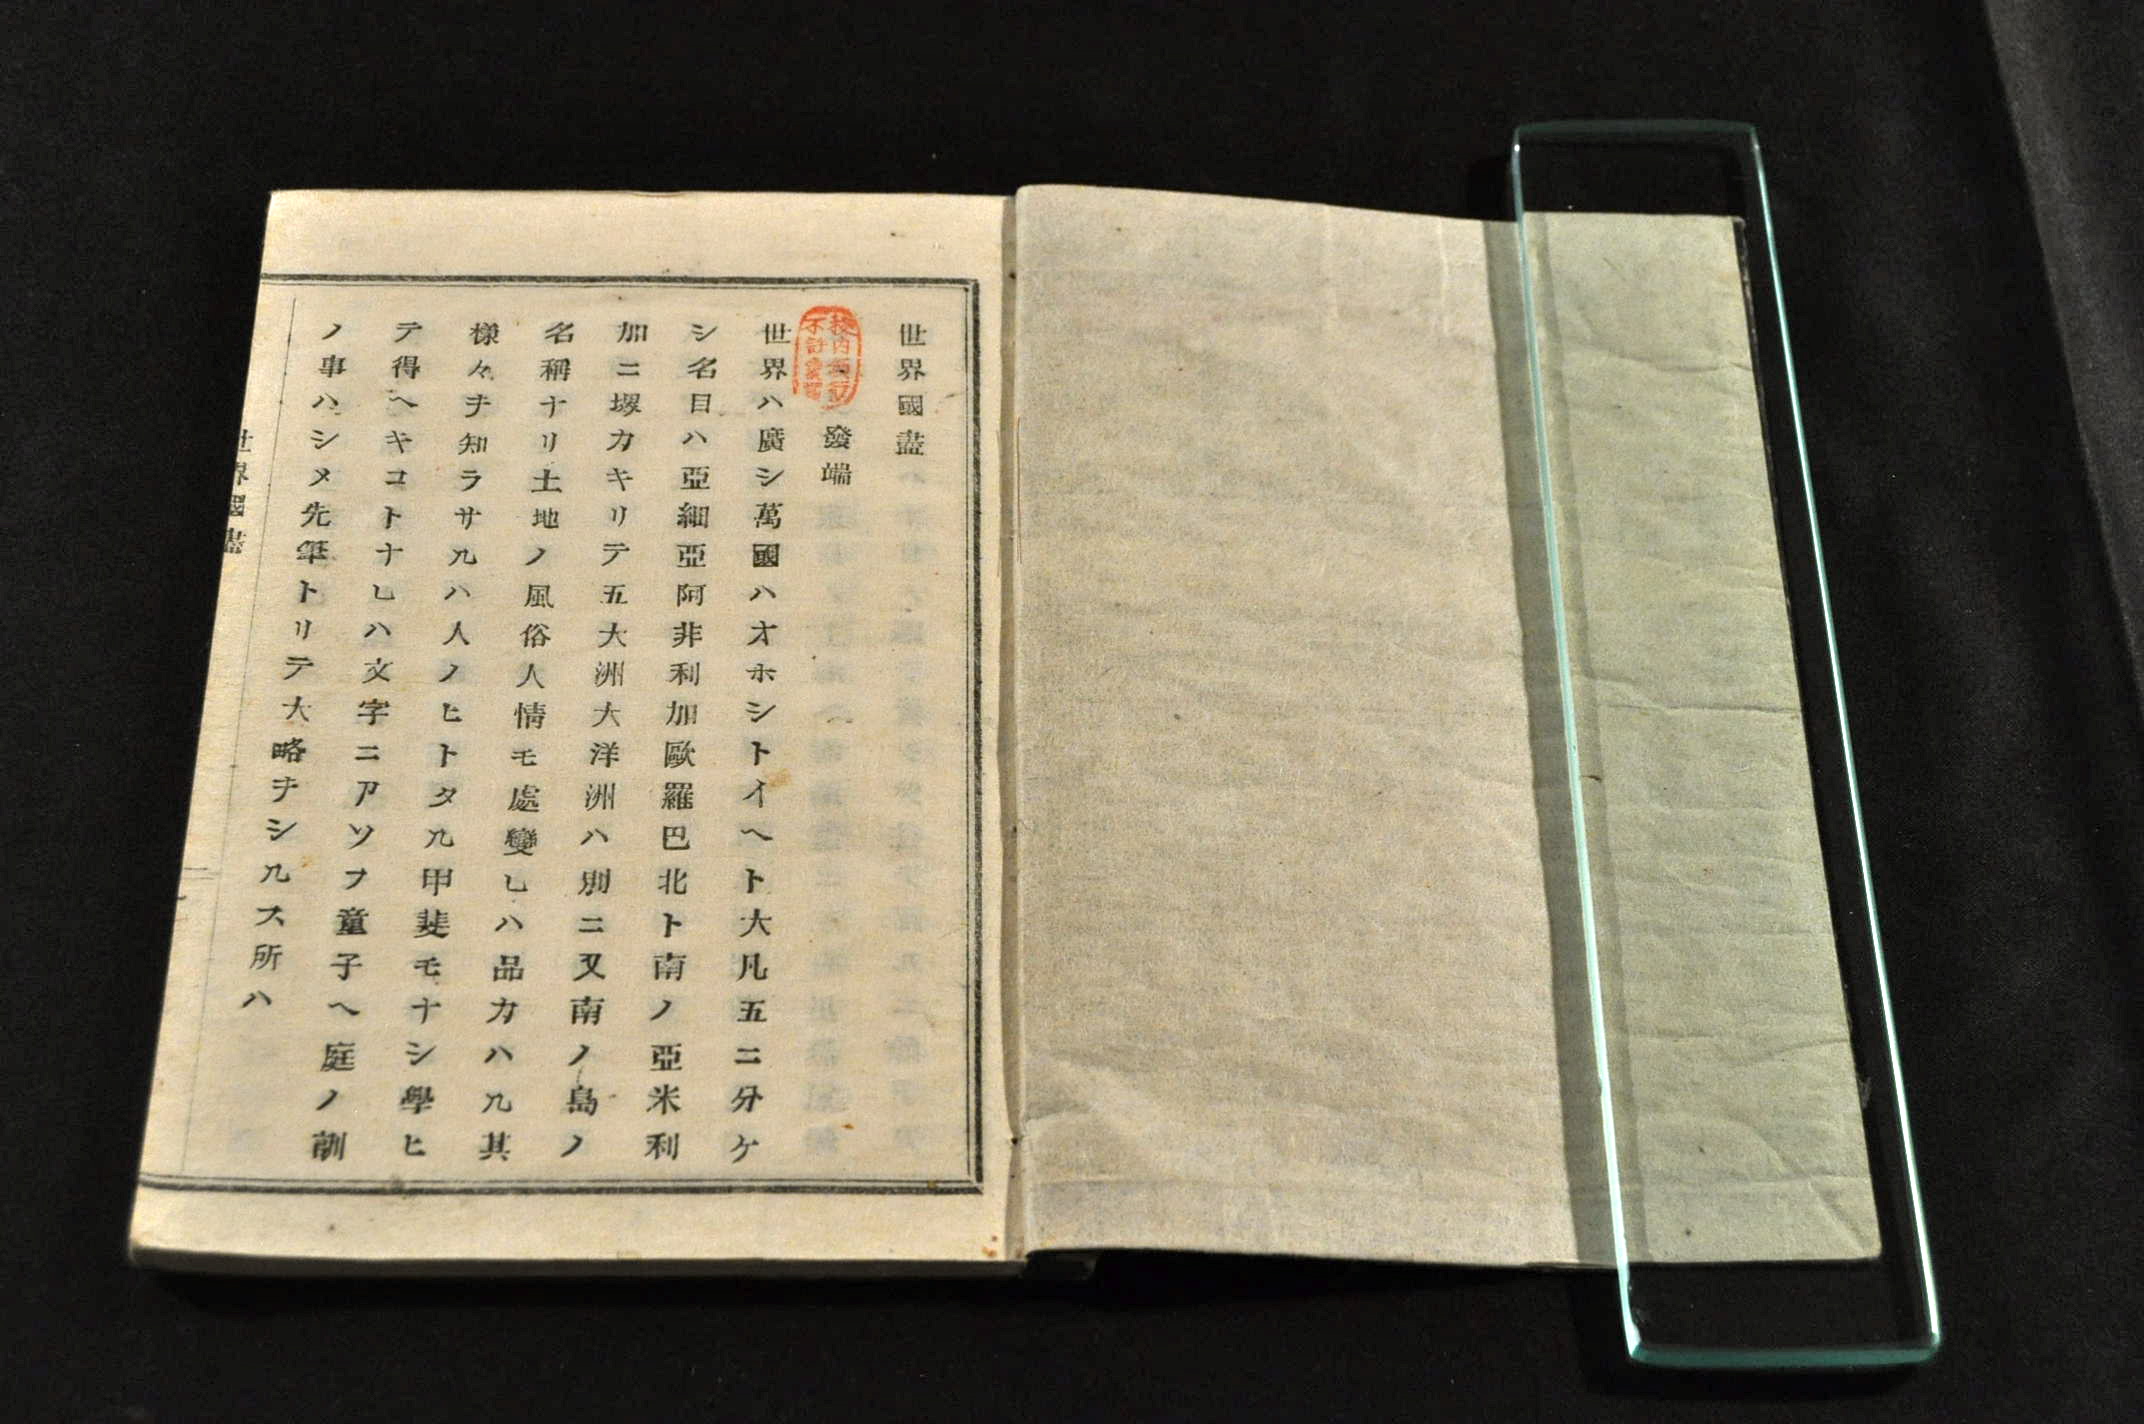 世界國盡
發端
世界ハ廣シ萬國ハオホシトイヘト大凡五ニ分ケ
シ名目ハ亞細亞阿非利加歐羅巴北ト南ノ亞米利
加ニ堺カキリテ五大洲大洋洲ハ別ニ又南ノ島ノ
名稱ナリ土地ノ風俗人情モ處變レハ品カハル其
樣々ヲ知ラサルハ人ノヒトタル甲斐モナシ學ヒ
テ得ヘキコトナレハ文字ニアソフ童子ヘ庭ノ訓
ノ事ハシメ先筆トリテ大略ヲシルス所ハ
世界國盡